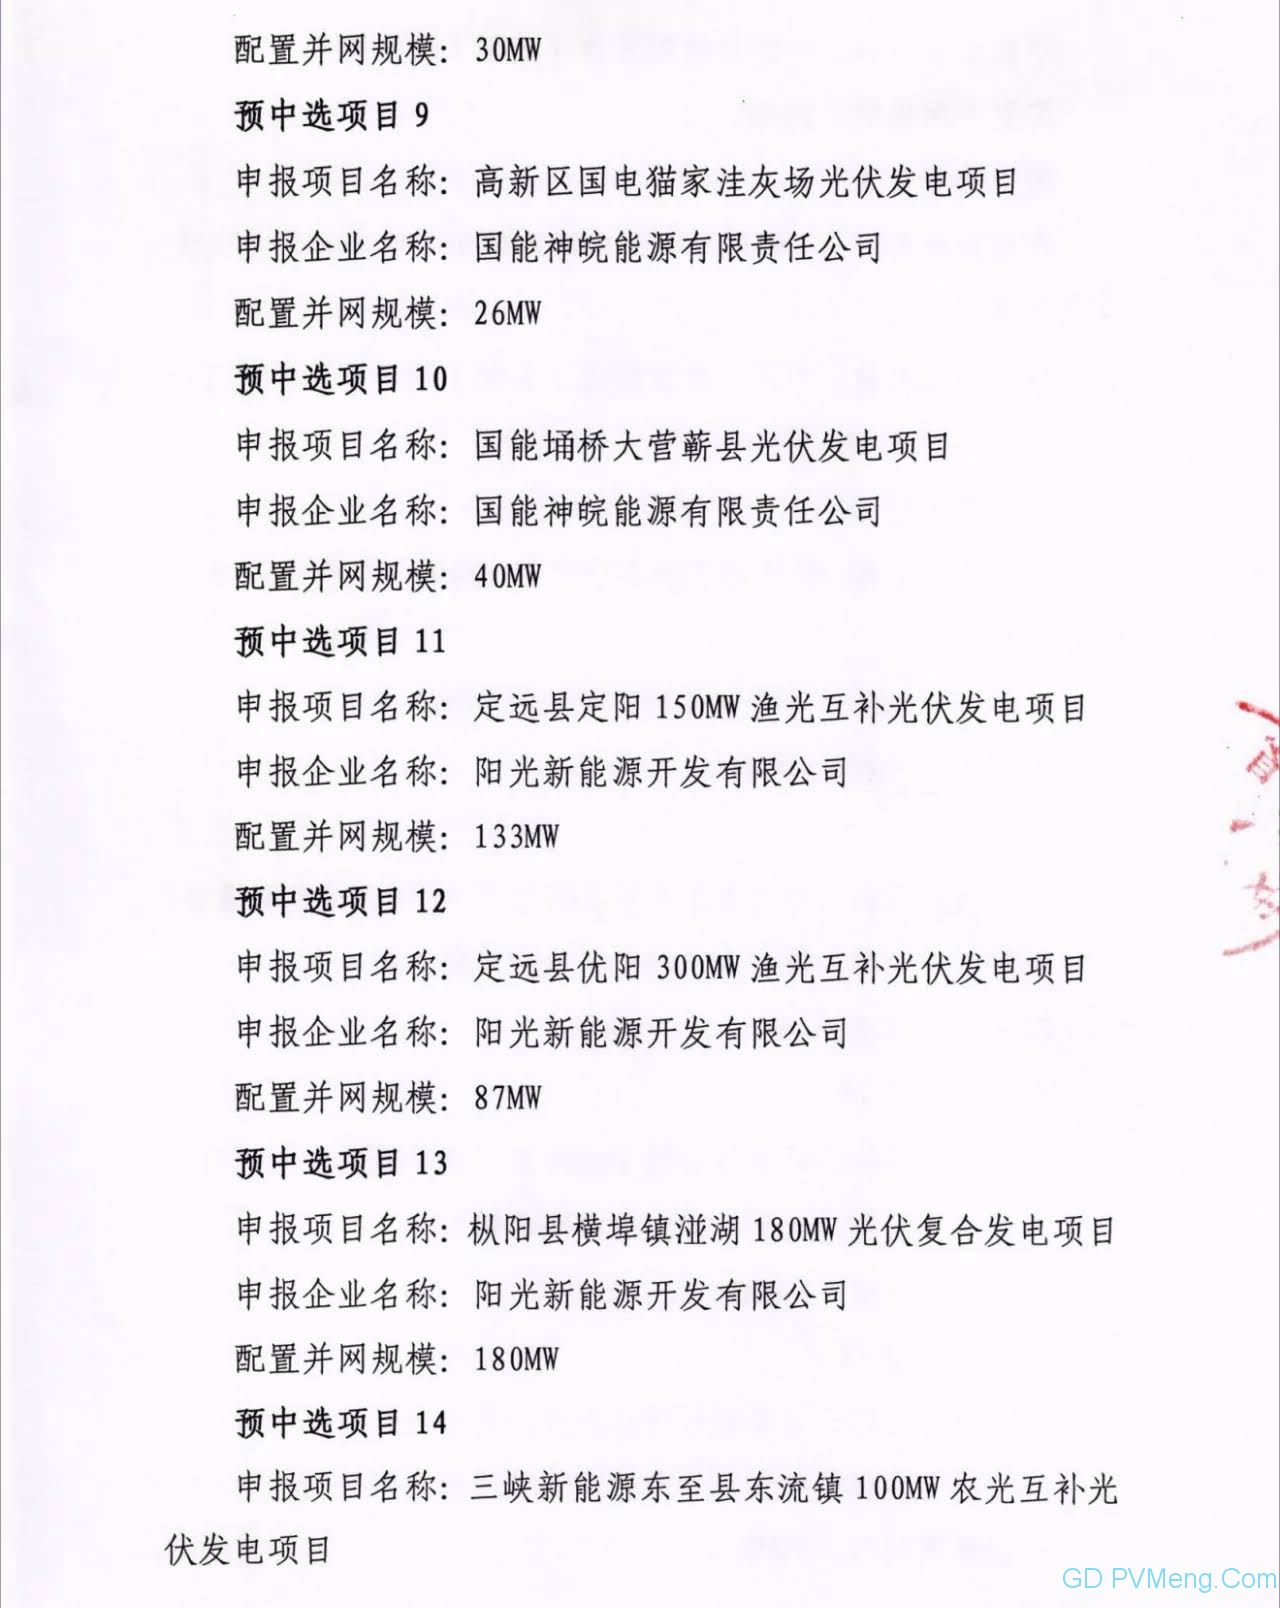 配置并网规模：30MW
预中选项目 9
申报项目名称：高新区国电猫家洼灰场光伏发电项目
申报企业名称：国能神皖能源有限责任公司
配置并网规模：26MW
预中选项目 10
申报项目名称：国能埇桥大营蕲县光伏发电项目
申报企业名称：国能神皖能源有限责任公司
配置并网规模：40MW
预中选项目 11
申报项目名称：定远县定阳 150MW 渔光互补光伏发电项目
申报企业名称：阳光新能源开发有限公司
配置并网规模：133MW
预中选项目 12
申报项目名称：定远县优阳 300MW 渔光互补光伏发电项目
申报企业名称：阳光新能源开发有限公司
配置并网规模：87MW
预中选项目 13
申报项目名称：枞阳县横埠镇湴湖 180MW 光伏复合发电项目
申报企业名称：阳光新能源开发有限公司
配置并网规模：180MW
预中选项目 14
申报项目名称：三峡新能源东至县东流镇 100MW 农光互补光
伏发电项目
GD PVMeng.Com